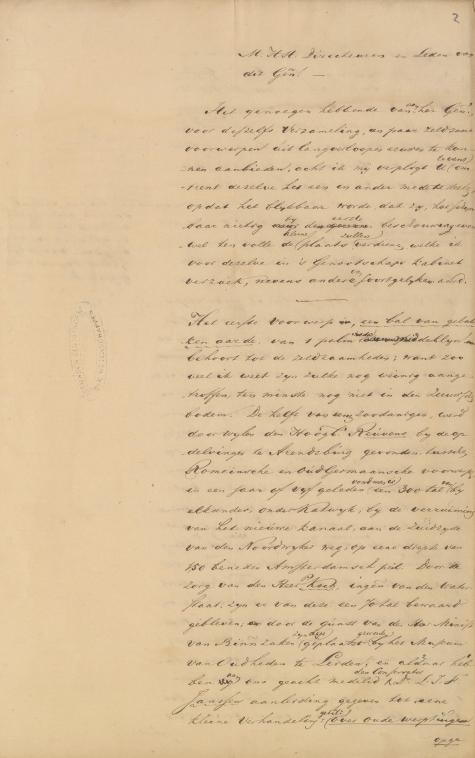 2
M. H. H. Directeuren en Leden van
dit Gen!
Het genoegen hebbende van het Gen:
voor deszelfs Verzameling, een paar zeldzame
voorwerpen uit langverloopen eeuwen te kun-
nen aanbieden, acht ik my verpligt U, om-
trent dezelve het een en ander mede te deelen,
opdat het blykbaar worde dat zy, hoe
baar nietig by eerste beschouwing even
wel ten volle de kleine plaats zullen verdienen, welke ik
voor dezelve in 's Genootschaps kabinet
verzoek, nevens andere soortgelyken
Het eerste voorwerp, een bal van gebak
ken aarde, van 1 palm middellyn
behoort tot de zeldzaamheden; want zoo
veel ik weet zyn zulke nog weinig aange-
troffen, ten minste nog niet in den Zeeuwsche
bodem. De helft van zoodaniges, werd
door wylen den Hoogl. Reuvens by de op-
delvingen te Arendsburg gevonden tusschen
Romeinsche en OudGermaansche voorwerp
en een jaar of vyf geleden werden 300 tal by
elkander, onder Katwyk, by de verruiming
van het nieuwe kanaal, aan de zuidzyde
van den Noordwyker weg, op eene diepte van
150 beneden Amsterdamsch peil. Door de
zorg van den Heer Kock, ingen van den water
staat, zyn er van deze een 70tal bewaard
gebleven, en door de gunst van den Minis
van Binn Zaken zyn deze geplaatst geworden by het Museum
van Oudheden te Leiden, en aldaar heb
ben zy ons geacht medelid den Conservator Dr. L. J. F.
Janssen aanleiding gegeven tot eene
kleine Verhandeling, getiteld over oude werptuigen
opge